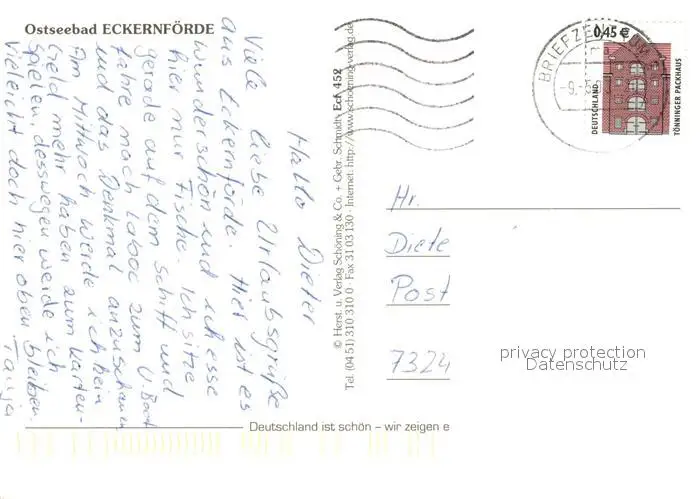 Ostseebad ECKERNFÖRDE
Hallo Dieter
Viele liebe Urlaubsgrüße
aus Eckernförde. Hier ist es
wunderschön und ich esse
hier nur Fische. Ich sitze
gerade auf dem Schiff und
fahre nach Laboe zum U-Boot
und das Denkmal anzuschauen
Am Mittwoch werde ich kein
Geld mehr haben zum Karten-
spielen, desswegen werde ich
vieleicht doch hier oben bleiben.
Tanja
© Herst. u. Verlag Schöning & Co. + Gebr. Schmidt, Ecf 452
Tel. (04 51) 310 310 0 · Fax 31 03 130 · Internet: http://www.schoening-verlag.de
BRIEFZENTRUM
0,45 €
DEUTSCHLAND
TÖNNINGER PACKHAUS
Hr.
Diete
Post
7324
privacy protection
Datenschutz
Deutschland ist schön – wir zeigen e